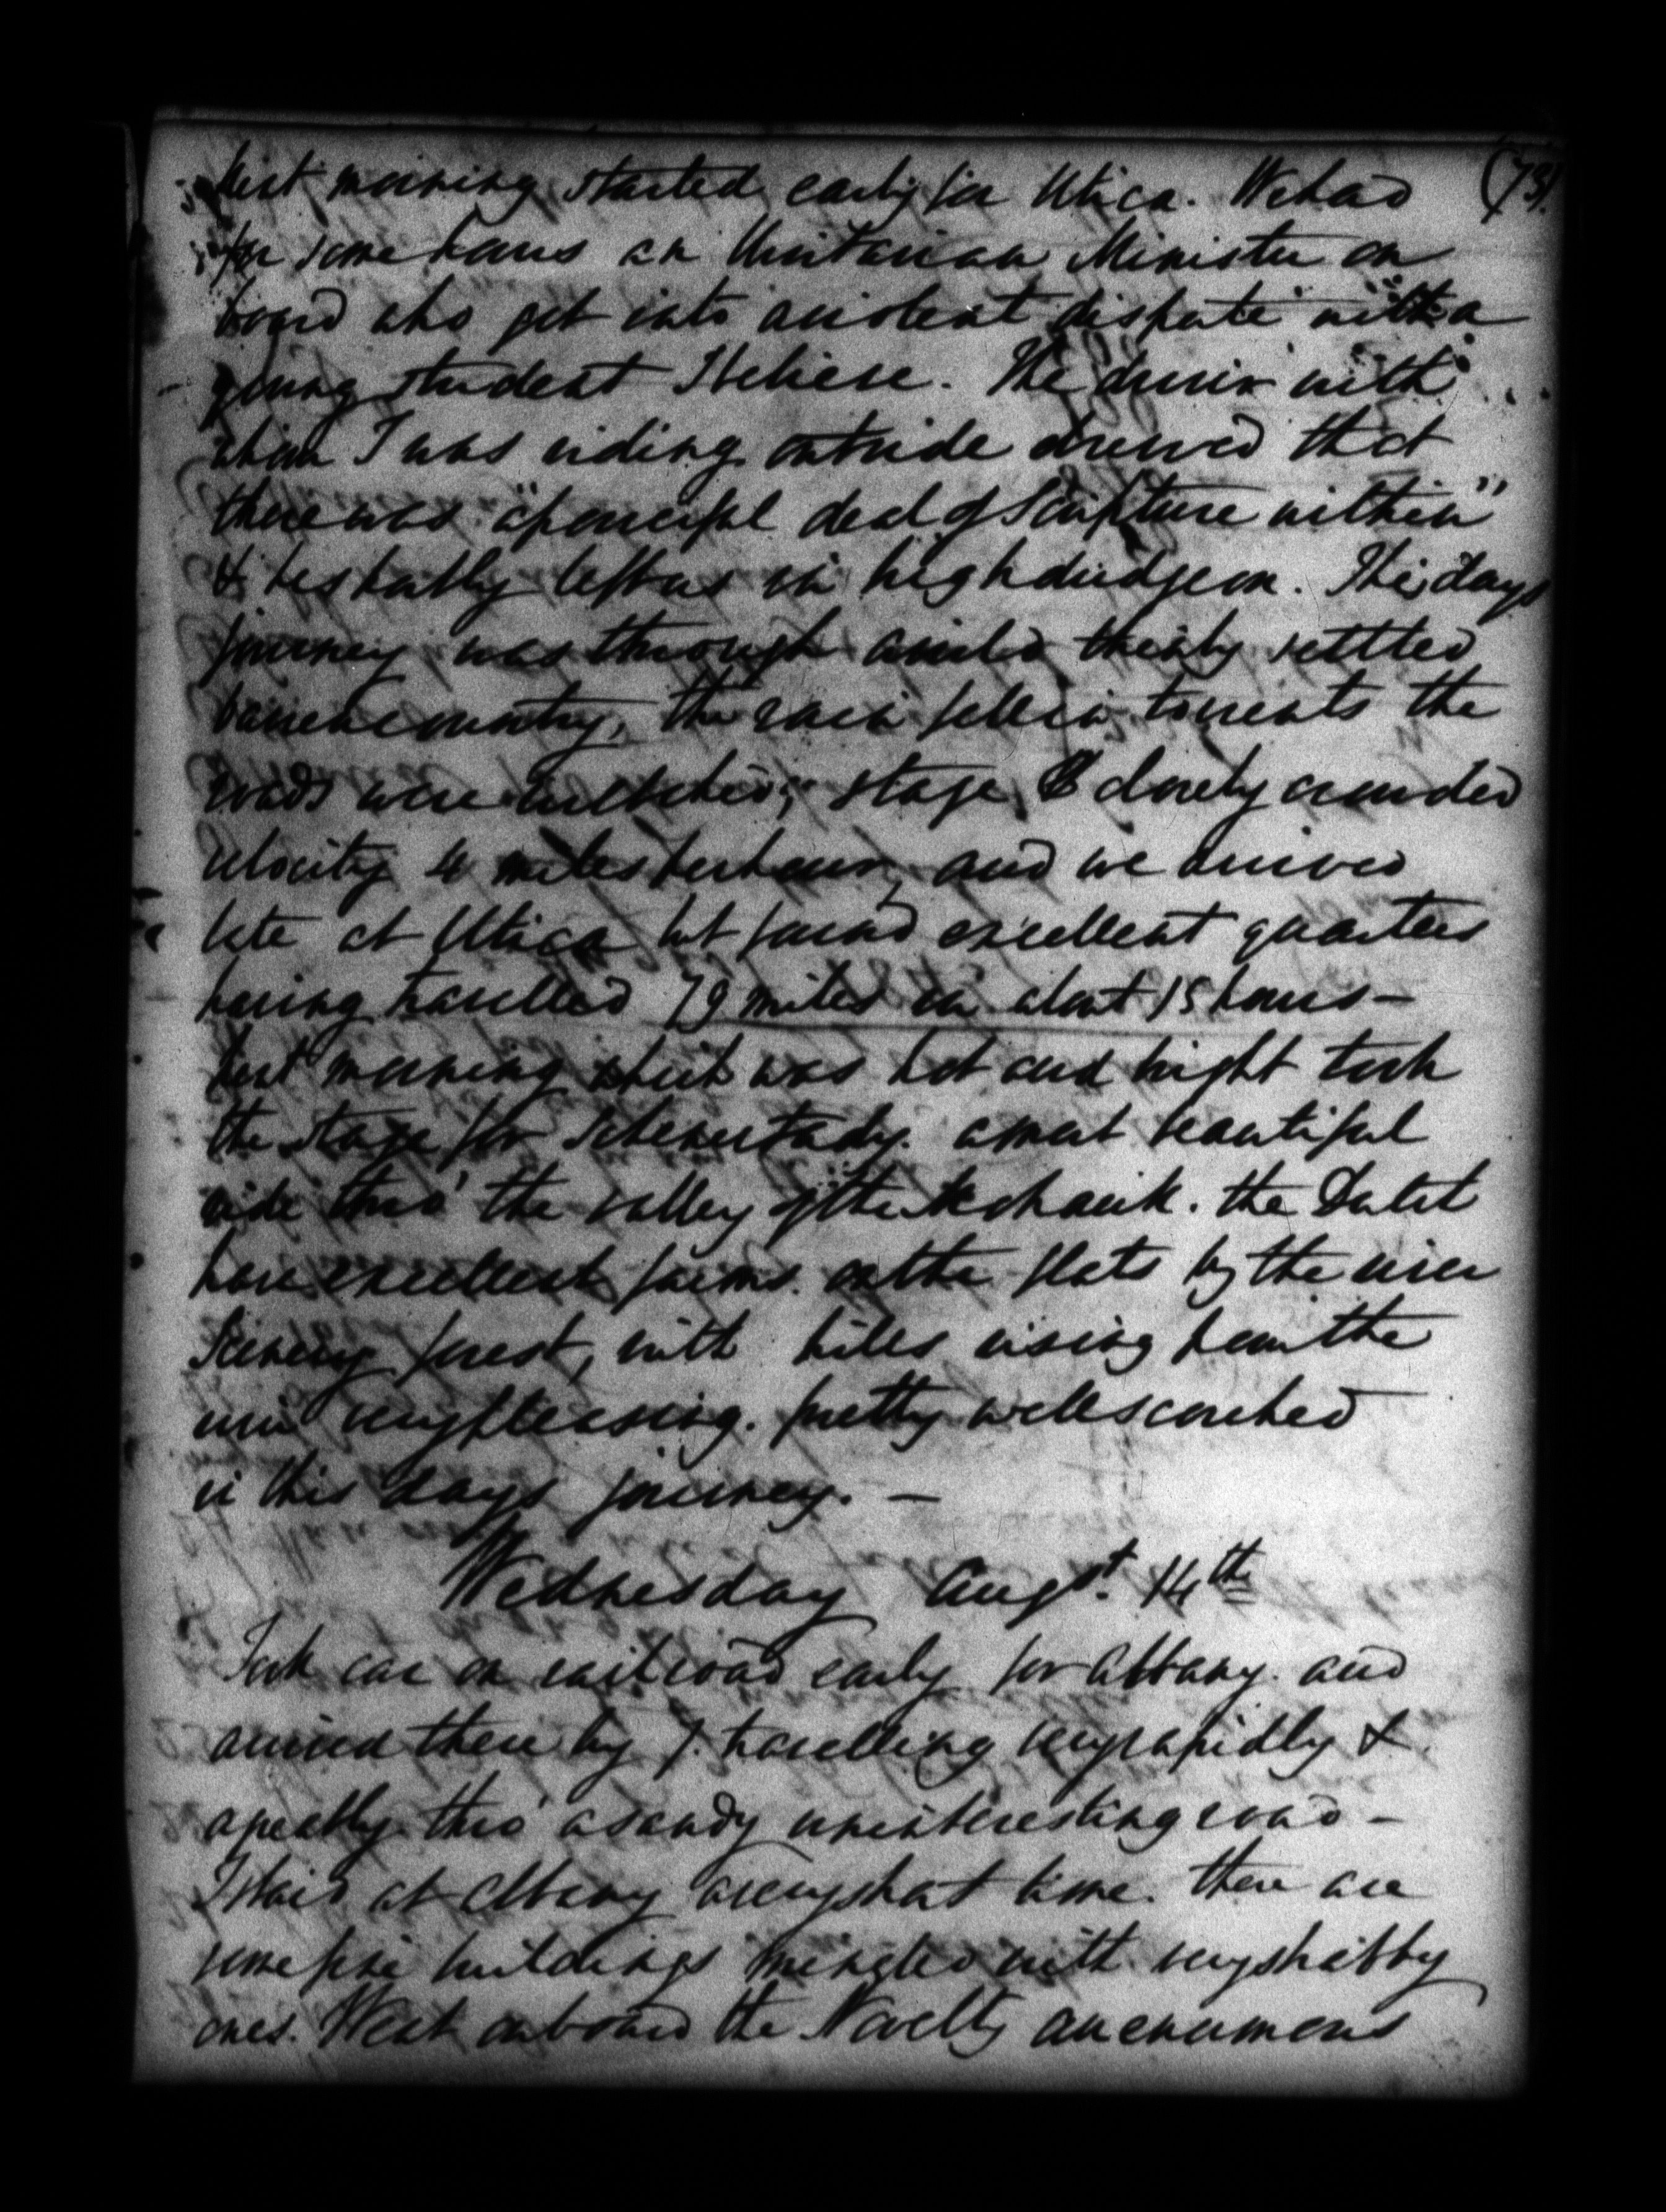 (73)
next morning started early for Utica. We had
for some hours an Unitarian Minister on
board who got into a violent dispute with a
young student I believe. The driver with
whom I was riding outside observed that
there was "a powerful deal of Scripture within"
& he shortly left us in high dudgeon. This days
journey was through a wild thinly settled
barren country, the rain fell in torrents the
roads were wretched, stage closely crowded
velocity 4 miles per hour, and we arrived
late at Utica but found excellent quarters
having travelled 79 miles in about 15 hours —
next morning which was hot and bright took
the stage for Schenectady. a most beautiful
ride thro' the valley of the Mohawk. the Dutch
have excellent farms on the flats by the river
Scenery forest, with hills rising from the
river very pleasing. pretty well scorched
in this days journey. —
Wednesday Augst. 14th
Took car on railroad early for Albany. and
arrived there by 7. travelling very rapidly &
agreeably thro' a sandy uninteresting road —
I staid at Albany a very short time. there are
some fine buildings mingled with very shabby
ones. Went on board the Novelty an enormous